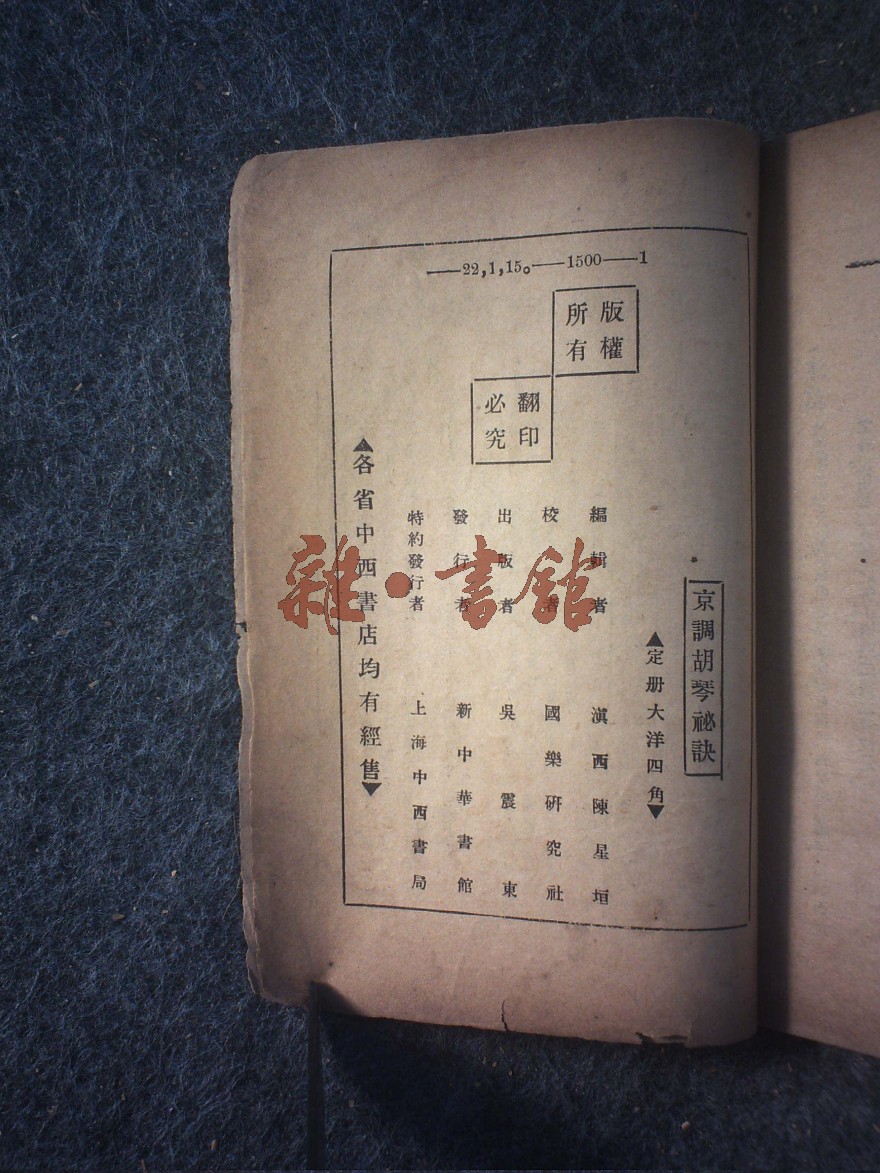 22,1,15。——1500——1
版權
所有
翻印
必究
京調胡琴祕訣
▲定册大洋四角▼
編輯者 滇西陳星垣
校者 國樂研究社
出版者 吳震東
發行者 新中華書館
特約發行者 上海中西書局
▲各省中西書店均有經售▼
雜·書館